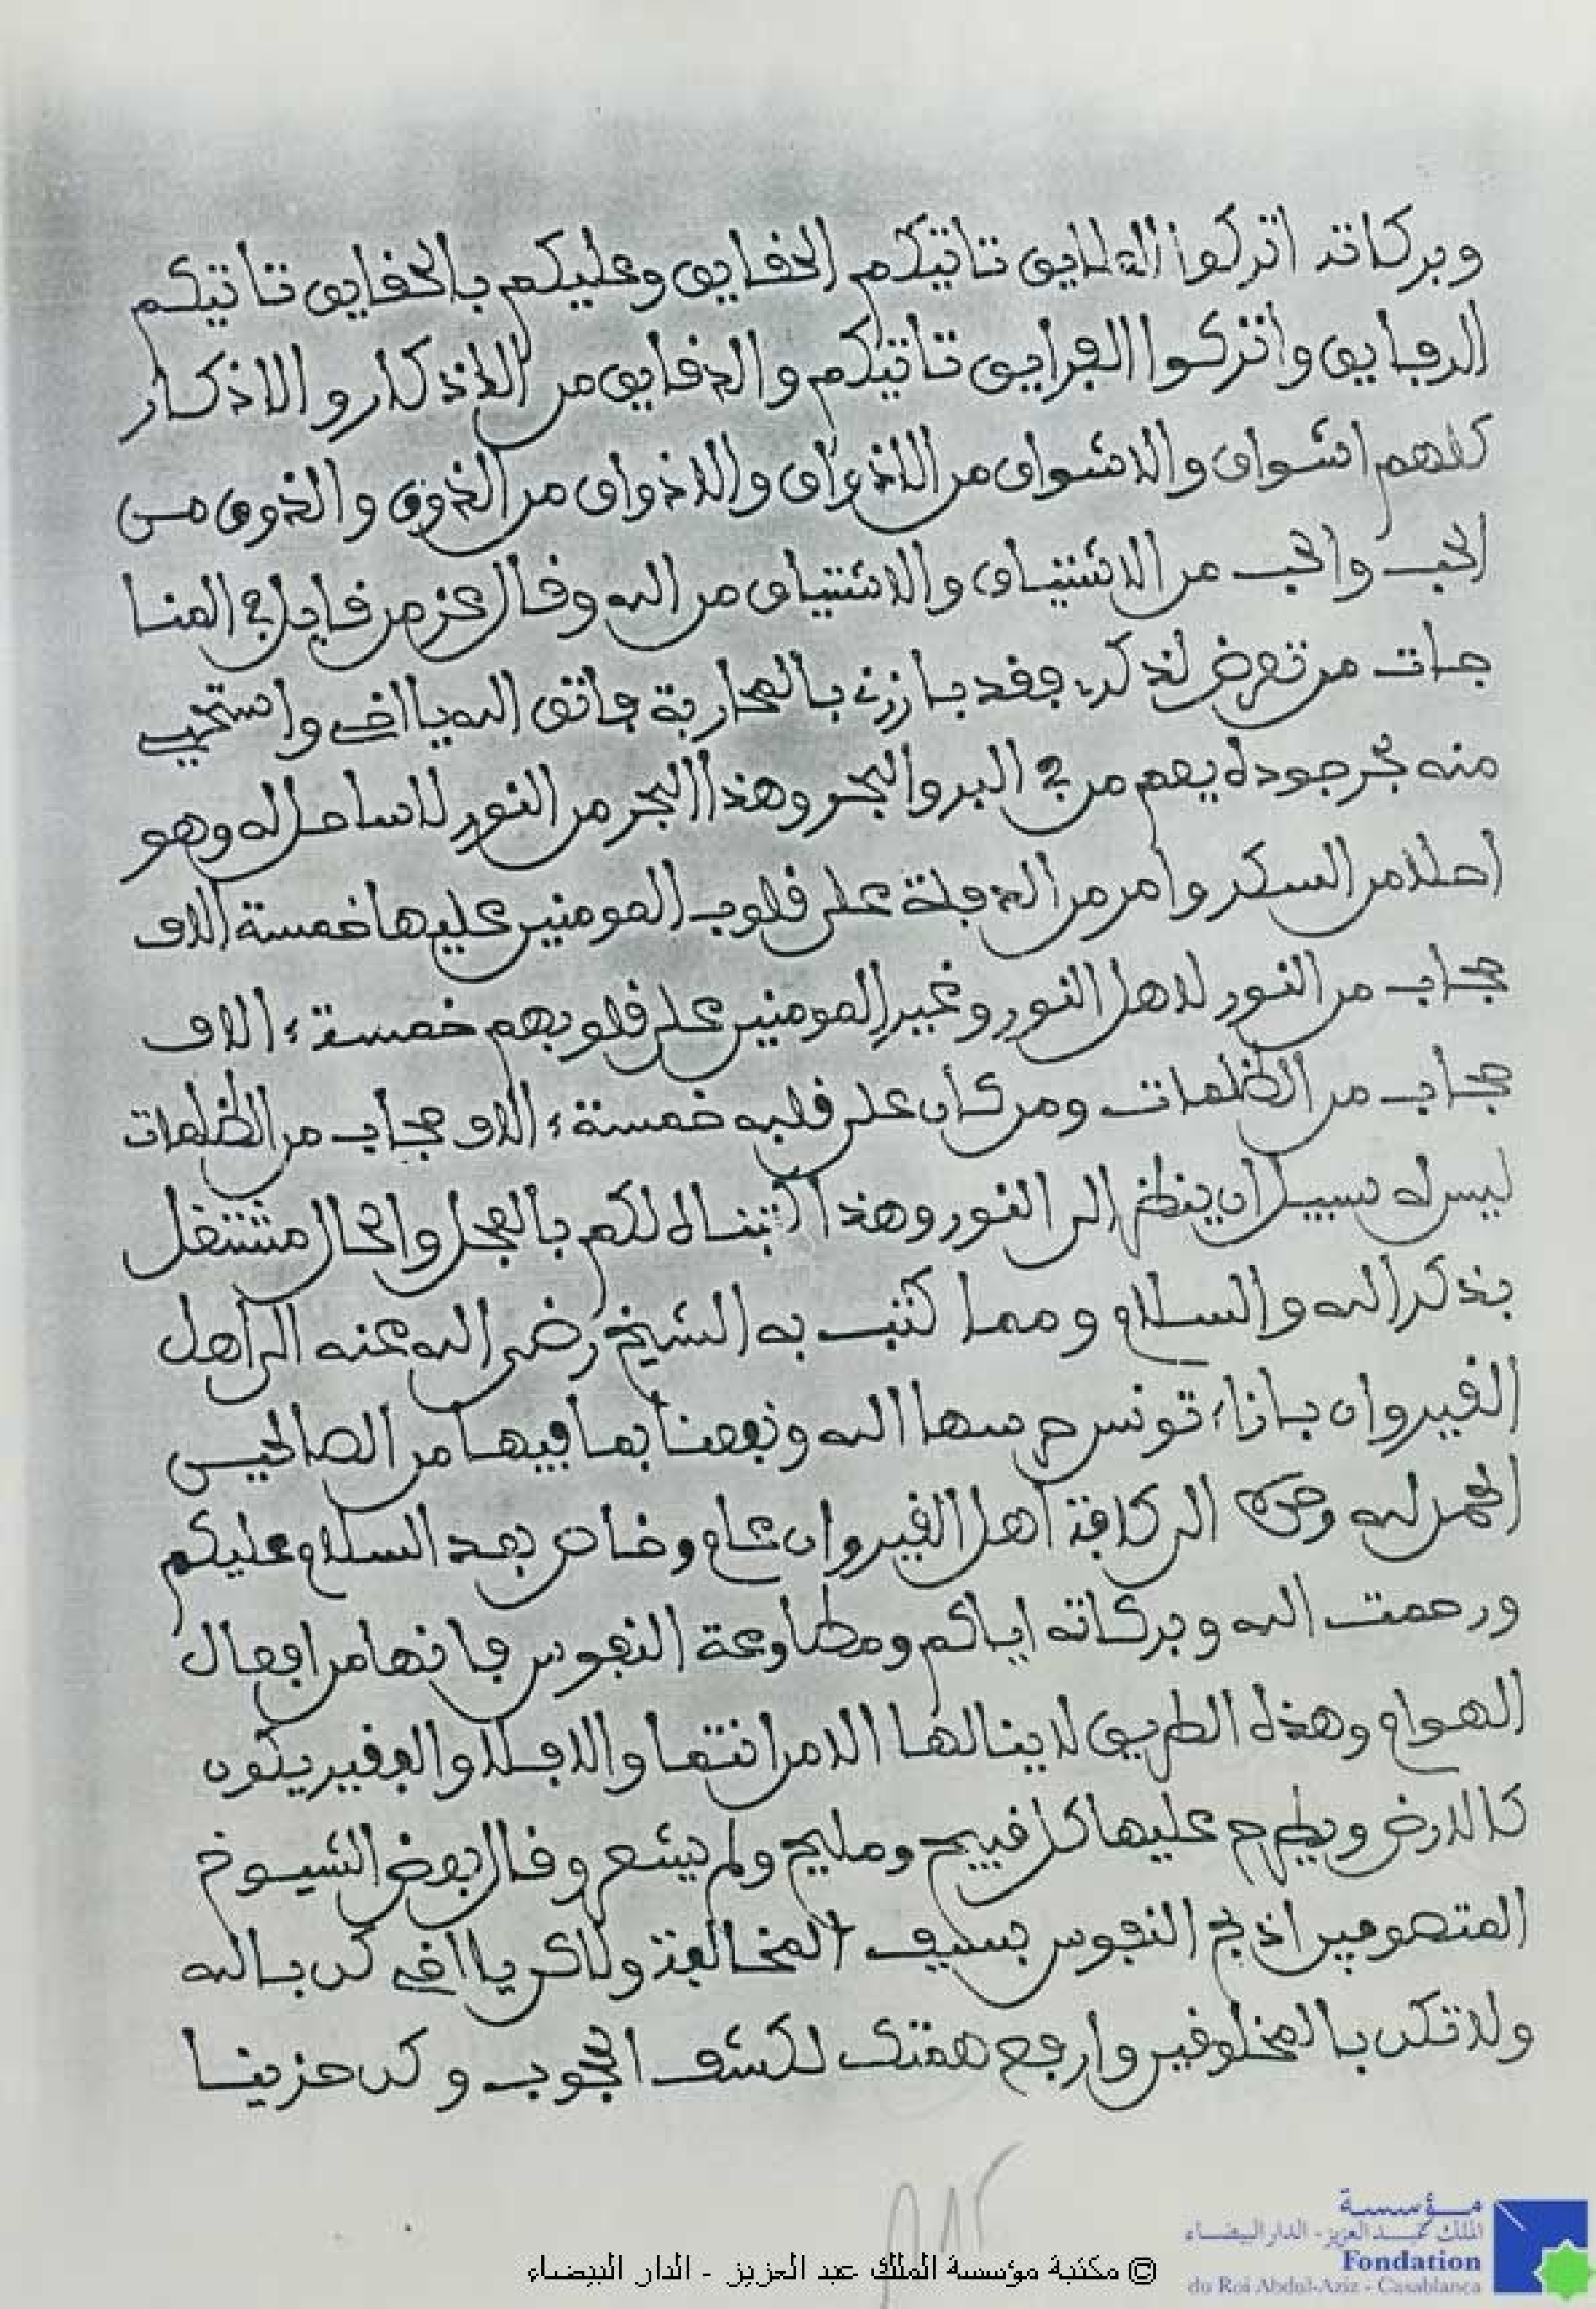 وبركاته اتركوا العلايق تاتيكم الحقايق وعليكم بالحقايق تاتيكم
الدقايق واتركوا الفرايق تاتيكم والدقايق من الاذكار والاذكار
كلهم اشواق والاشواق من الاذواق والاذواق من الذوق والذوق من
الحب والحب من الاشتياق والاشتياق من الله وقال عز من قايل في المنا
جات من تعرض لذكري فقد بارزني بالمحاربة فاتق الله يا اخي واستحيي
منه بحر جوده يعم من في البر والبحر وهذا البحر من النور لا ساحل له وهو
احلا من السكر وامر من الدفلة على قلوب المومنين عليها خمسة الاف
حجاب من النور لاهل النور وغير المومنين على قلوبهم خمسة الاف
حجاب من الظلمات ومن كان على قلبه خمسة الاف حجاب من الظلمات
ليس له سبيل ان ينظر الى النور وهذا كتبناه لكم بالعجل والحال مشتغل
بذكر الله والسلام ومما كتب به الشيخ رضي الله عنه الى اهل
القيروان بازاء تونس حرسها الله ونفعنا بما فيها من الصالحين
الحمد لله وحده الى كافة اهل القيروان عام وخاص بعد السلام عليكم
ورحمت الله وبركاته اياكم ومطاوعة النفوس فانها من افعال
الهوام وهذه الطريق لا ينالها الا من انتما والا فلا والفقير يكون
كالارض ويطرح عليها كل قبيح ومليح ولم يشعر وقال بعض الشيوخ
المتصوفين اذبح النفوس بسيف المخالفة ولاكن يا اخي كن بالله
ولا تكن بالمخلوقين وارفع همتك لكشف الحجوب وكن حزينا
مؤسسة
الملك عبد العزيز - الدار البيضاء
Fondation
du Roi Abdul-Aziz - Casablanca
© مكتبة مؤسسة الملك عبد العزيز - الدار البيضاء